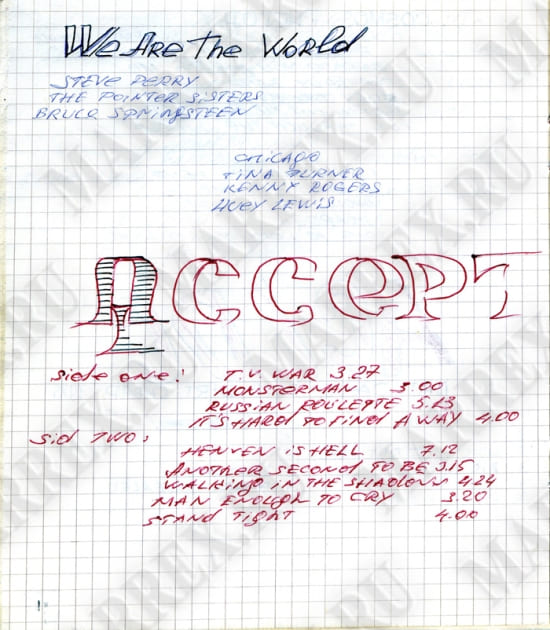 We Are The World
STEVE PERRY
THE POINTER SISTERS
BRUCE SPRINGSTEEN
CHICAGO
TINA TURNER
KENNY ROGERS
HUEY LEWIS
Accept
side one: T.V. WAR 3.27
MONSTERMAN 3.00
RUSSIAN ROULETTE 5.13
IT'S HARD TO FIND A WAY 4.00
Sid TWO:
HENVEN iS HELL 7.12
ANOTHER SECOND TO BE 3.15
WALKING IN THE SHADOWN 4.24
MAN ENOUGH TO CRY 3.20
STAND TIGHT 4.00
MARREX.RU